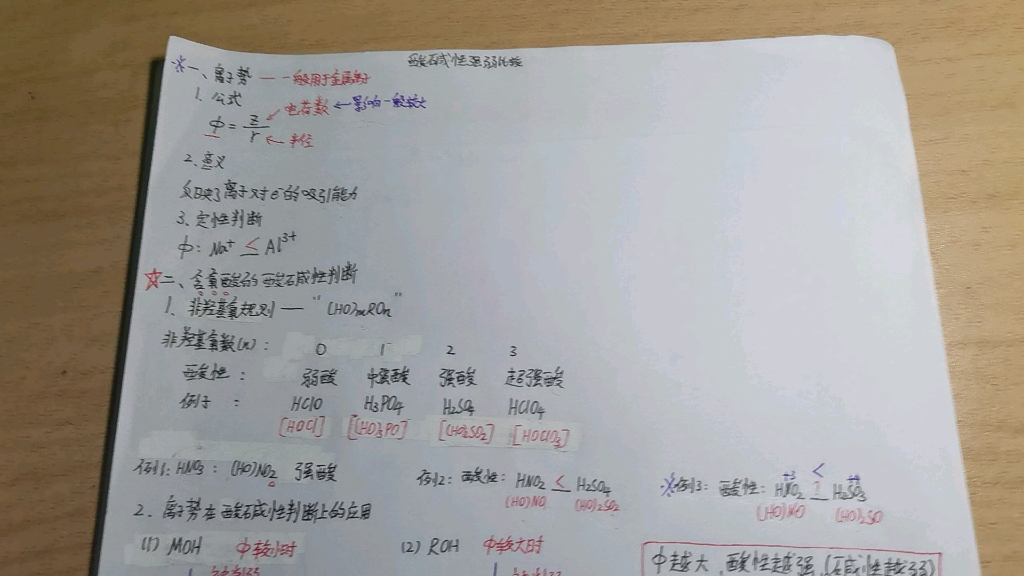 酸碱性强弱比较
※一、离子势 — 一般用于金属离子
1. 公式
φ = z/r ← 电荷数 ← 影响一般较大
← 半径
2. 意义
反映了离子对e⁻的吸引能力
3. 定性判断
φ: Na⁺ < Al³⁺
☆二、含氧酸的酸碱性判断
1. 非羟基氧规则 — “(HO)mROn”
非羟基氧数(n): 0 1 2 3
酸性: 弱酸 中强酸 强酸 超强酸
例子: HClO H₃PO₄ H₂SO₄ HClO₄
[HOCl] [(HO)₃PO] [(HO)₂SO₂] [HOClO₃]
例1: HNO₃: (HO)NO₂ 强酸
例2: 酸性: HNO₂ < H₂SO₄
(HO)NO (HO)₂SO₂
※例3: 酸性: HNO₂ < H₂SO₃
+3 +4
?
(HO)NO (HO)₂SO
2. 离子势在酸碱性判断上的应用
(1) MOH φ较小时
(2) ROH φ较大时
φ越大,酸性越强(碱性越弱)